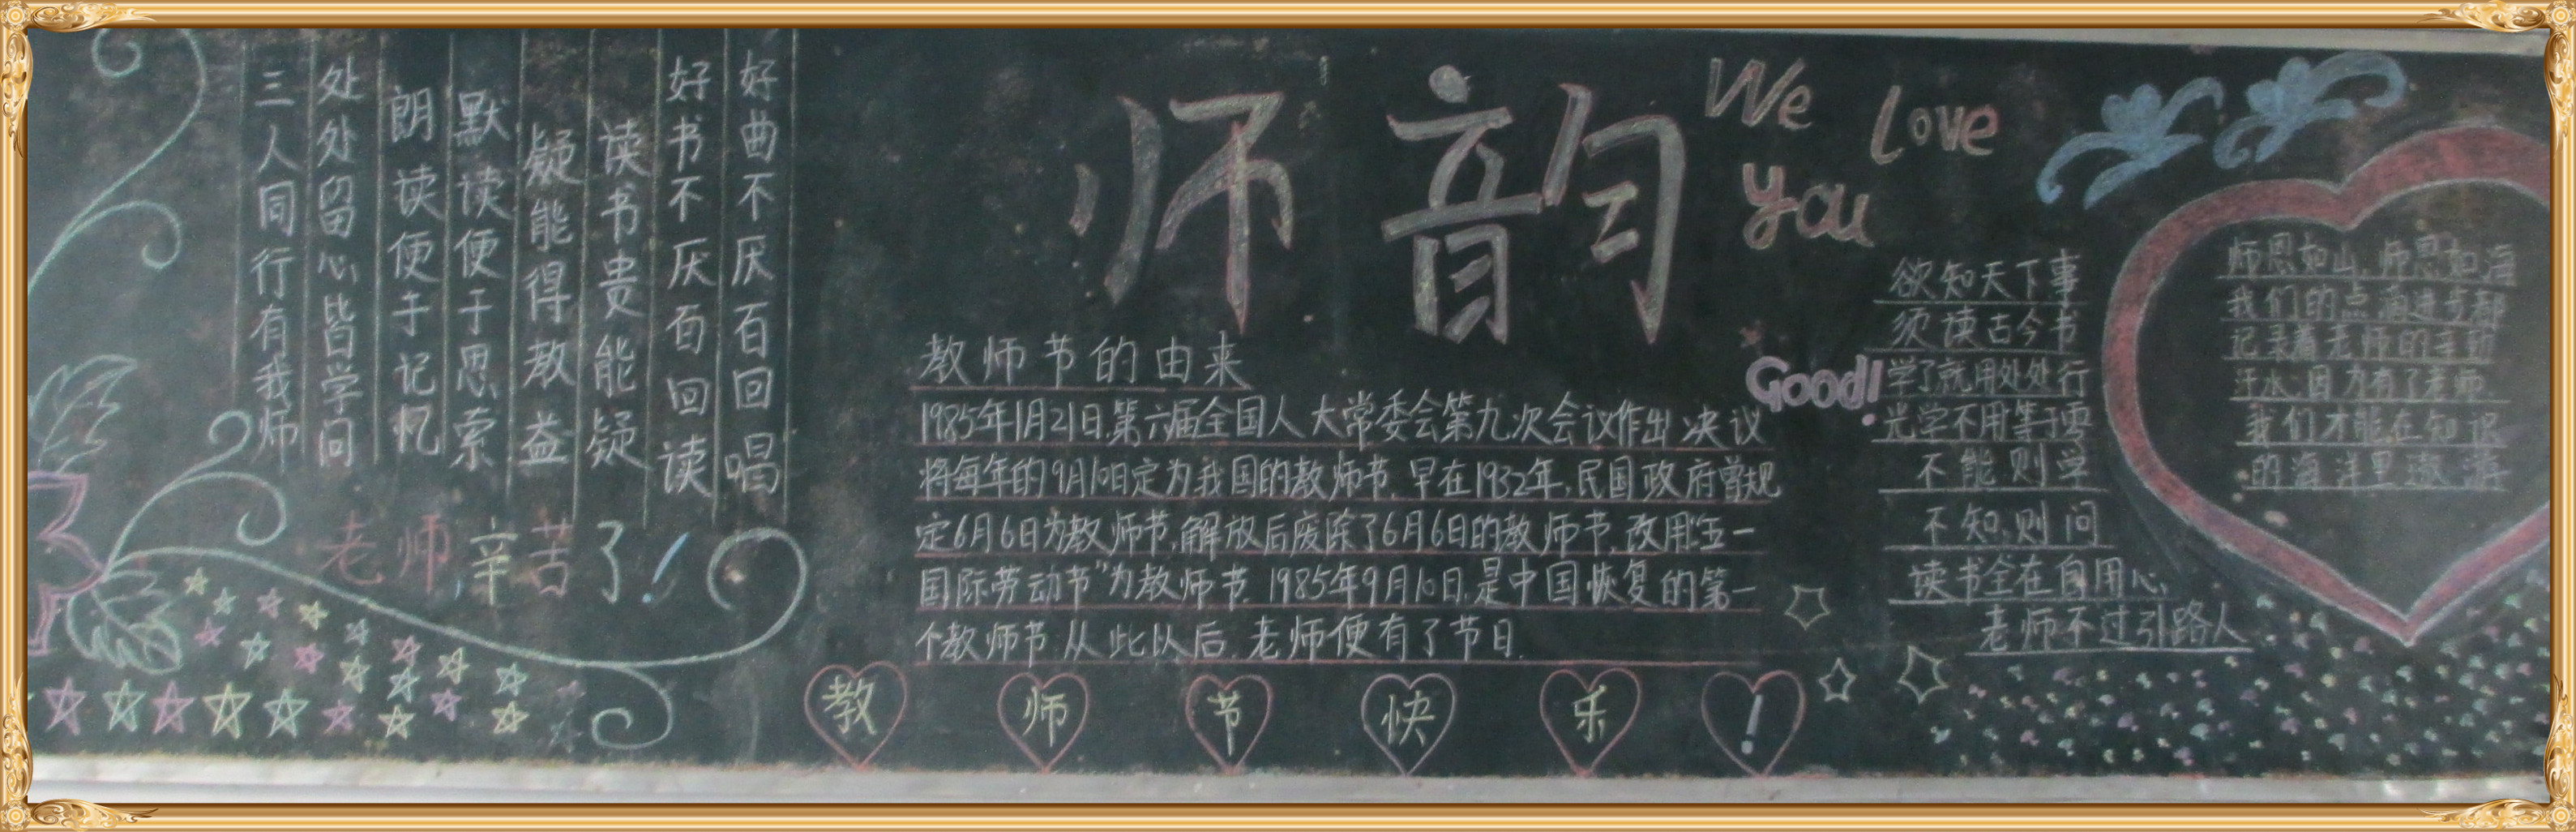 好曲不厌百回唱
好书不厌百回读
读书贵能疑
疑能得教益
默读便于思索
朗读便于记忆
处处留心皆学问
三人同行有我师
老师辛苦了!
师韵
We Love
you
教师节的由来
1985年1月21日,第六届全国人大常委会第九次会议作出决议
将每年的9月10日定为我国的教师节.早在1932年,民国政府曾规
定6月6日为教师节,解放后废除了6月6日的教师节,改用“五一
国际劳动节”为教师节.1985年9月10日,是中国恢复的第一
个教师节.从此以后,老师便有了节日.
教师节快乐!
Good!
欲知天下事
须读古今书
学了就用处处行
光学不用等于零
不能则学
不知则问
读书全在自用心,
老师不过引路人
师恩如山,师恩如海
我们的点滴进步都
记录着老师的辛勤
汗水.因为有了老师.
我们才能在知识
的海洋里遨游